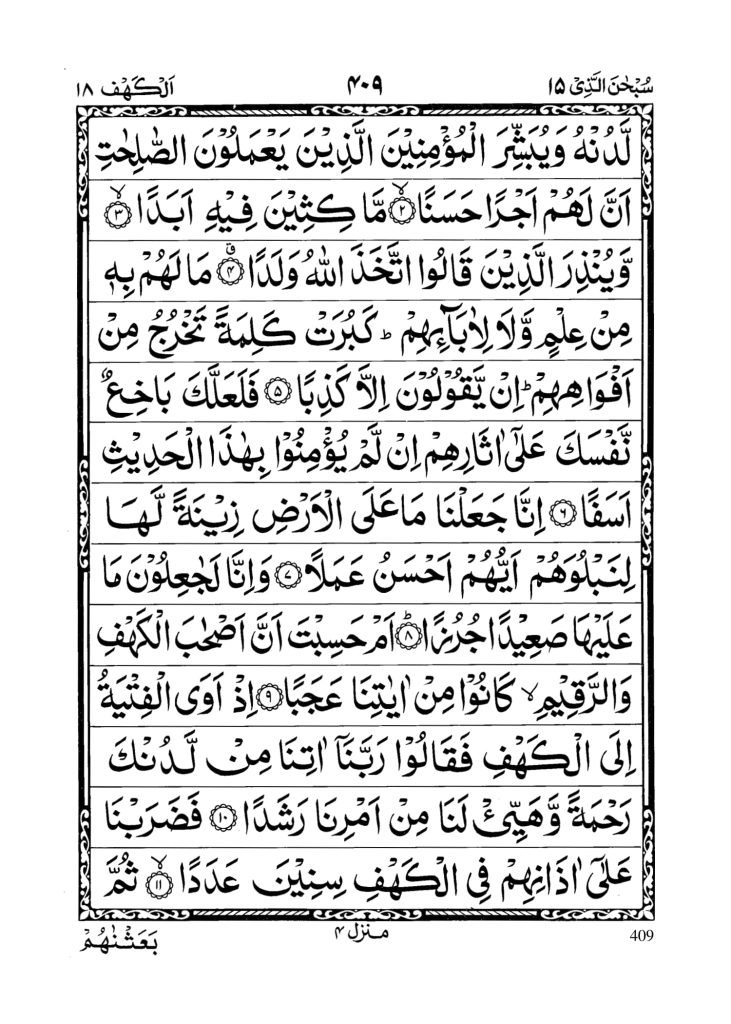 سُبْحٰنَ الَّذِیْ ۱۵ ۴۰۹ اَلْكَهْف ۱۸
لَّدُنْهُ وَیُبَشِّرَ الْمُؤْمِنِیْنَ الَّذِیْنَ یَعْمَلُوْنَ الصّٰلِحٰتِ
اَنَّ لَهُمْ اَجْرًا حَسَنًاۙ۲ مَّا كِثِیْنَ فِیْهِ اَبَدًاۙ۳
وَّیُنْذِرَ الَّذِیْنَ قَالُوا اتَّخَذَ اللّٰهُ وَلَدًاۗ۴ مَا لَهُمْ بِهٖ
مِنْ عِلْمٍ وَّلَا لِاٰبَآئِهِمْ ؕ كَبُرَتْ كَلِمَةً تَخْرُجُ مِنْ
اَفْوَاهِهِمْ ؕ اِنْ یَّقُوْلُوْنَ اِلَّا كَذِبًا ۵ فَلَعَلَّكَ بَاخِعٌ
نَّفْسَكَ عَلٰۤی اٰثَارِهِمْ اِنْ لَّمْ یُؤْمِنُوْا بِهٰذَا الْحَدِیْثِ
اَسَفًا ۶ اِنَّا جَعَلْنَا مَا عَلَی الْاَرْضِ زِیْنَةً لَّهَا
لِنَبْلُوَهُمْ اَیُّهُمْ اَحْسَنُ عَمَلًا ۷ وَاِنَّا لَجٰعِلُوْنَ مَا
عَلَیْهَا صَعِیْدًا جُرُزًاؕ۸ اَمْ حَسِبْتَ اَنَّ اَصْحٰبَ الْكَهْفِ
وَالرَّقِیْمِ ۙ كَانُوْا مِنْ اٰیٰتِنَا عَجَبًا ۹ اِذْ اَوَی الْفِتْیَةُ
اِلَی الْكَهْفِ فَقَالُوْا رَبَّنَاۤ اٰتِنَا مِنْ لَّدُنْكَ
رَحْمَةً وَّهَیِّئْ لَنَا مِنْ اَمْرِنَا رَشَدًا ۱۰ فَضَرَبْنَا
عَلٰۤی اٰذَانِهِمْ فِی الْكَهْفِ سِنِیْنَ عَدَدًاۙ۱۱ ثُمَّ
بَعَثْنٰهُمْ منزل ۴ 409